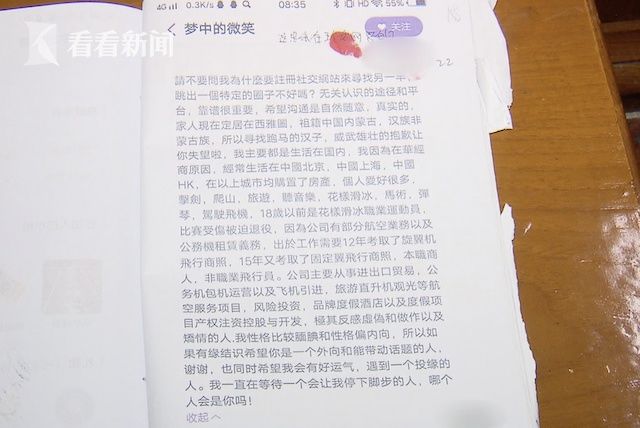 看看新闻
4G 0.3K/s 08:35 HD 55%
梦中的微笑
关注
22
請不要問我為什麼要註冊社交網站來尋找另一半，
跳出一個特定的圈子不好嗎？无关认识的途径和平
台，靠谱很重要，希望沟通是自然随意，真实的，
家人現在定居在西雅圖，祖籍中国内蒙古，汉族非
蒙古族，所以寻找跑马的汉子，威武雄壮的抱歉让
你失望啦，我主要都是生活在国内，我因為在華經
商原因，經常生活在中國北京，中國上海，中國
HK，在以上城市均購置了房產，個人愛好很多，
擊劍，爬山，旅遊，聽音樂，花樣滑冰，馬術，彈
琴，駕駛飛機，18歲以前是花樣滑冰職業運動員，
比賽受傷被迫退役，因為公司有部分航空業務以及
公務機租賃義務，出於工作需要12年考取了旋翼机
飛行商照，15年又考取了固定翼飛行商照，本職商
人，非職業飛行員。公司主要从事进出口贸易，公
务机包机运营以及飞机引进，旅游直升机观光等航
空服务项目，风险投资，品牌度假酒店以及度假项
目产权注资控股与开发，極其反感虛偽和做作以及
矯情的人，我性格比较腼腆和性格偏内向，所以如
果有缘结识希望你是一个外向和能带动话题的人，
谢谢，也同时希望我会有好运气，遇到一个投缘的
人。我一直在等待一个会让我停下脚步的人，哪个
人会是你吗！
收起